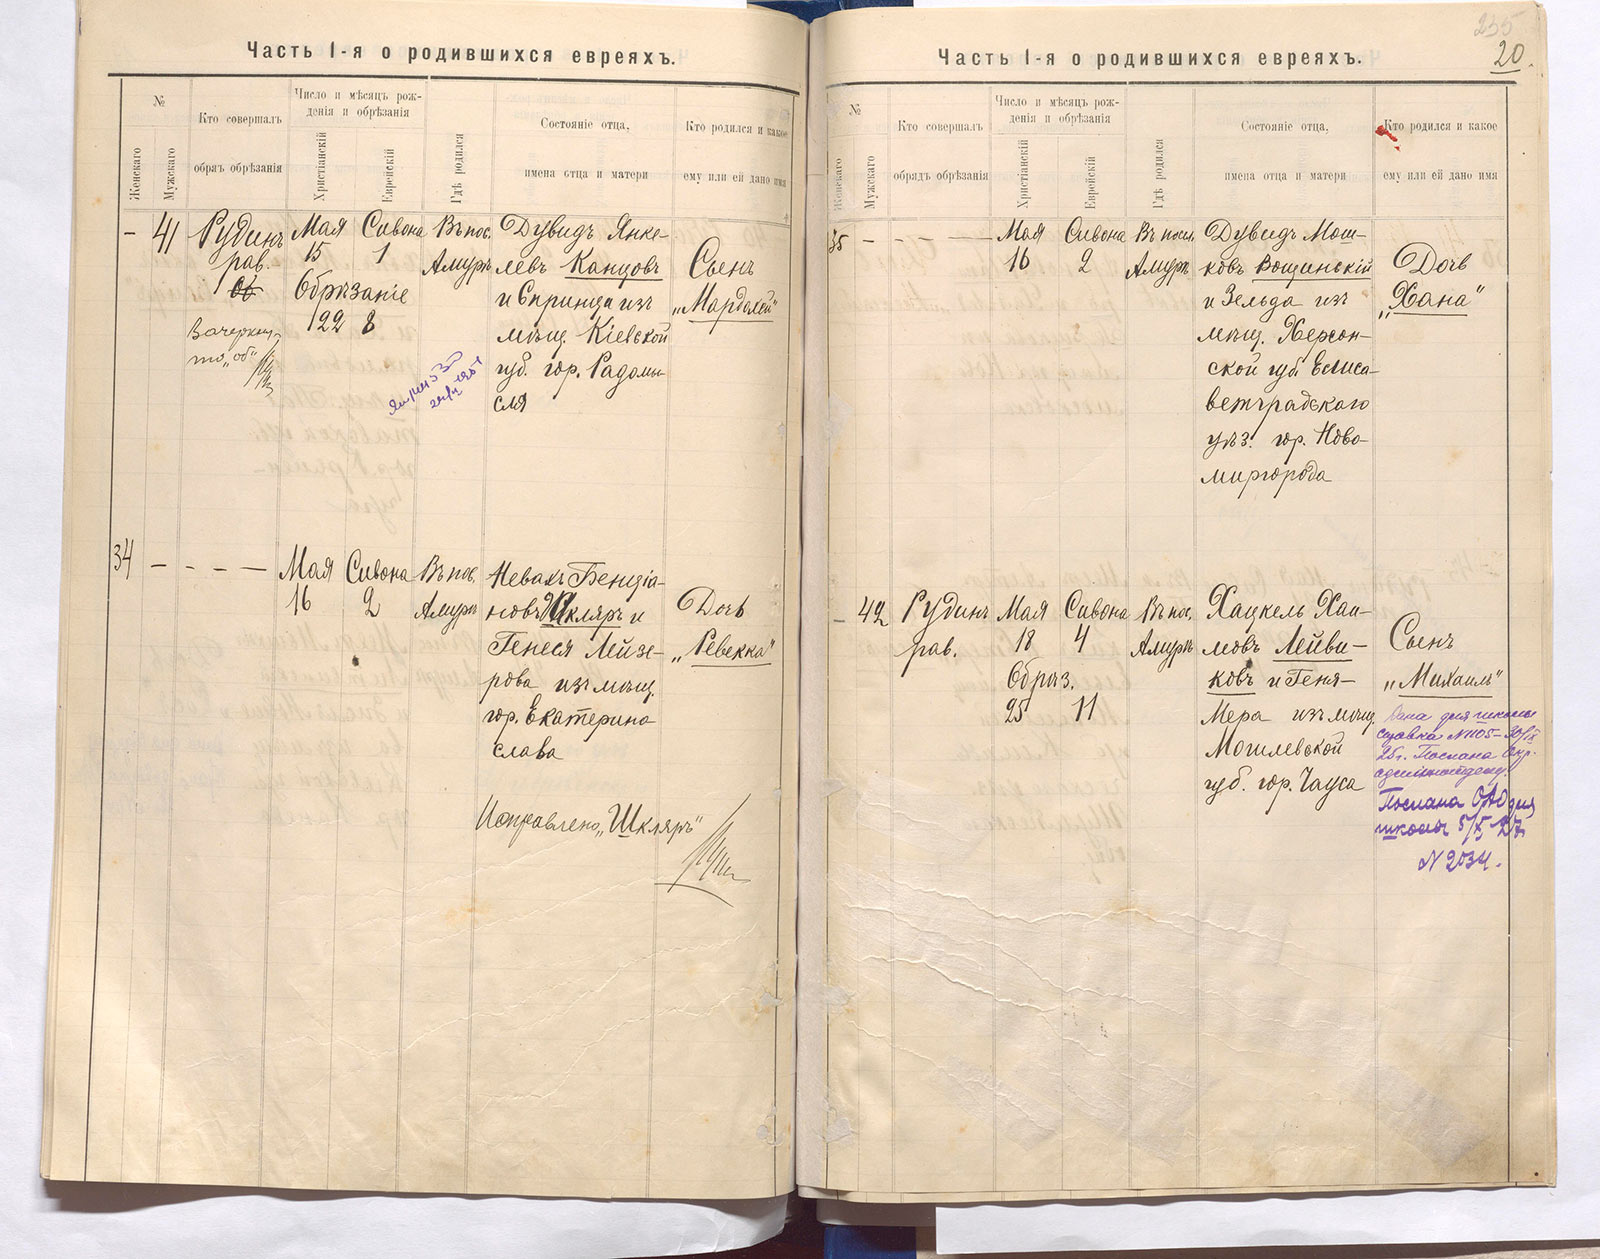 Часть I-я о родившихся евреяхъ.
№
Женскаго
Мужскаго
Кто совершалъ
обряъ обрѣзанія
Число и мѣсяцъ рож-
денія и обрѣзанія
Христіанскій
Еврейскій
Гдѣ родился
Состояніе отца,
имена отца и матери
Кто родился и какое
ему или ей дано имя
– 41
Рудинъ
рав.
Об
Зачеркну-
то „об“
Мая Сивона
15 1
Обрѣзаніе
22 8
Въ пос.
Амуръ
Дувидъ Янке-
левъ Канцовъ
и Спринца изъ
мѣщ. Кіевской
губ. гор. Радомы-
сля
Сынъ
„Мардохей“
34 – – – – —
Мая Сивона
16 2
Въ пос.
Амуръ
Невахъ Бенціа-
новъ Шкляръ и
Генеся Лейзе-
рова изъ мѣщ.
гор. Екатерино
слава
Дочь
„Ревекка“
Исправлено „Шкляръ“
235
20.
Часть I-я о родившихся евреяхъ.
№
Женскаго
Мужскаго
Кто совершалъ
обрядъ обрѣзанія
Число и мѣсяцъ рож-
денія и обрѣзанія
Христіанскій
Еврейскій
Гдѣ родился
Состояніе отца,
имена отца и матери
Кто родился и какое
ему или ей дано имя
35 – – – – —
Мая Сивона
16 2
Въ посел.
Амуръ
Дувидъ Мош-
ковъ Вощинскій
и Зельда изъ
мѣщ. Херсон-
ской губ Елиса-
ветградскаго
уѣз. гор. Ново-
миргорода
Дочь
„Хана“
– 42
Рудинъ
рав.
Мая Сивона
18 4
Обрѣз.
25 11
Въ пос.
Амуръ
Хацкель Хаи-
мовъ Лейви-
ковъ и Геня-
Мера изъ мѣщ.
Могилевской
губ. гор. Чауса
Сынъ
„Михаилъ“
Дана для школы
справка N 1105 – 30/IX
25г. Послана Окр.
Послана ОАО для
школы 5/X 27.
N 2034.